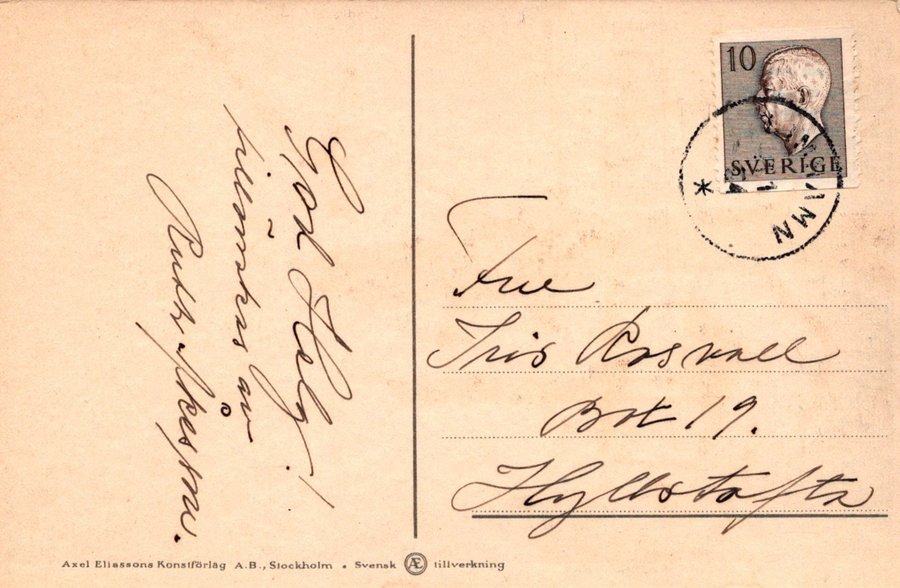 God Helg!
tillönskas av
Ruth Åkesson.
10
SVERIGE
AMN
Fru
Iris Rosvall
Box 19.
Hyllstofta
Axel Eliassons Konstförlag A.B., Stockholm • Svensk Æ tillverkning